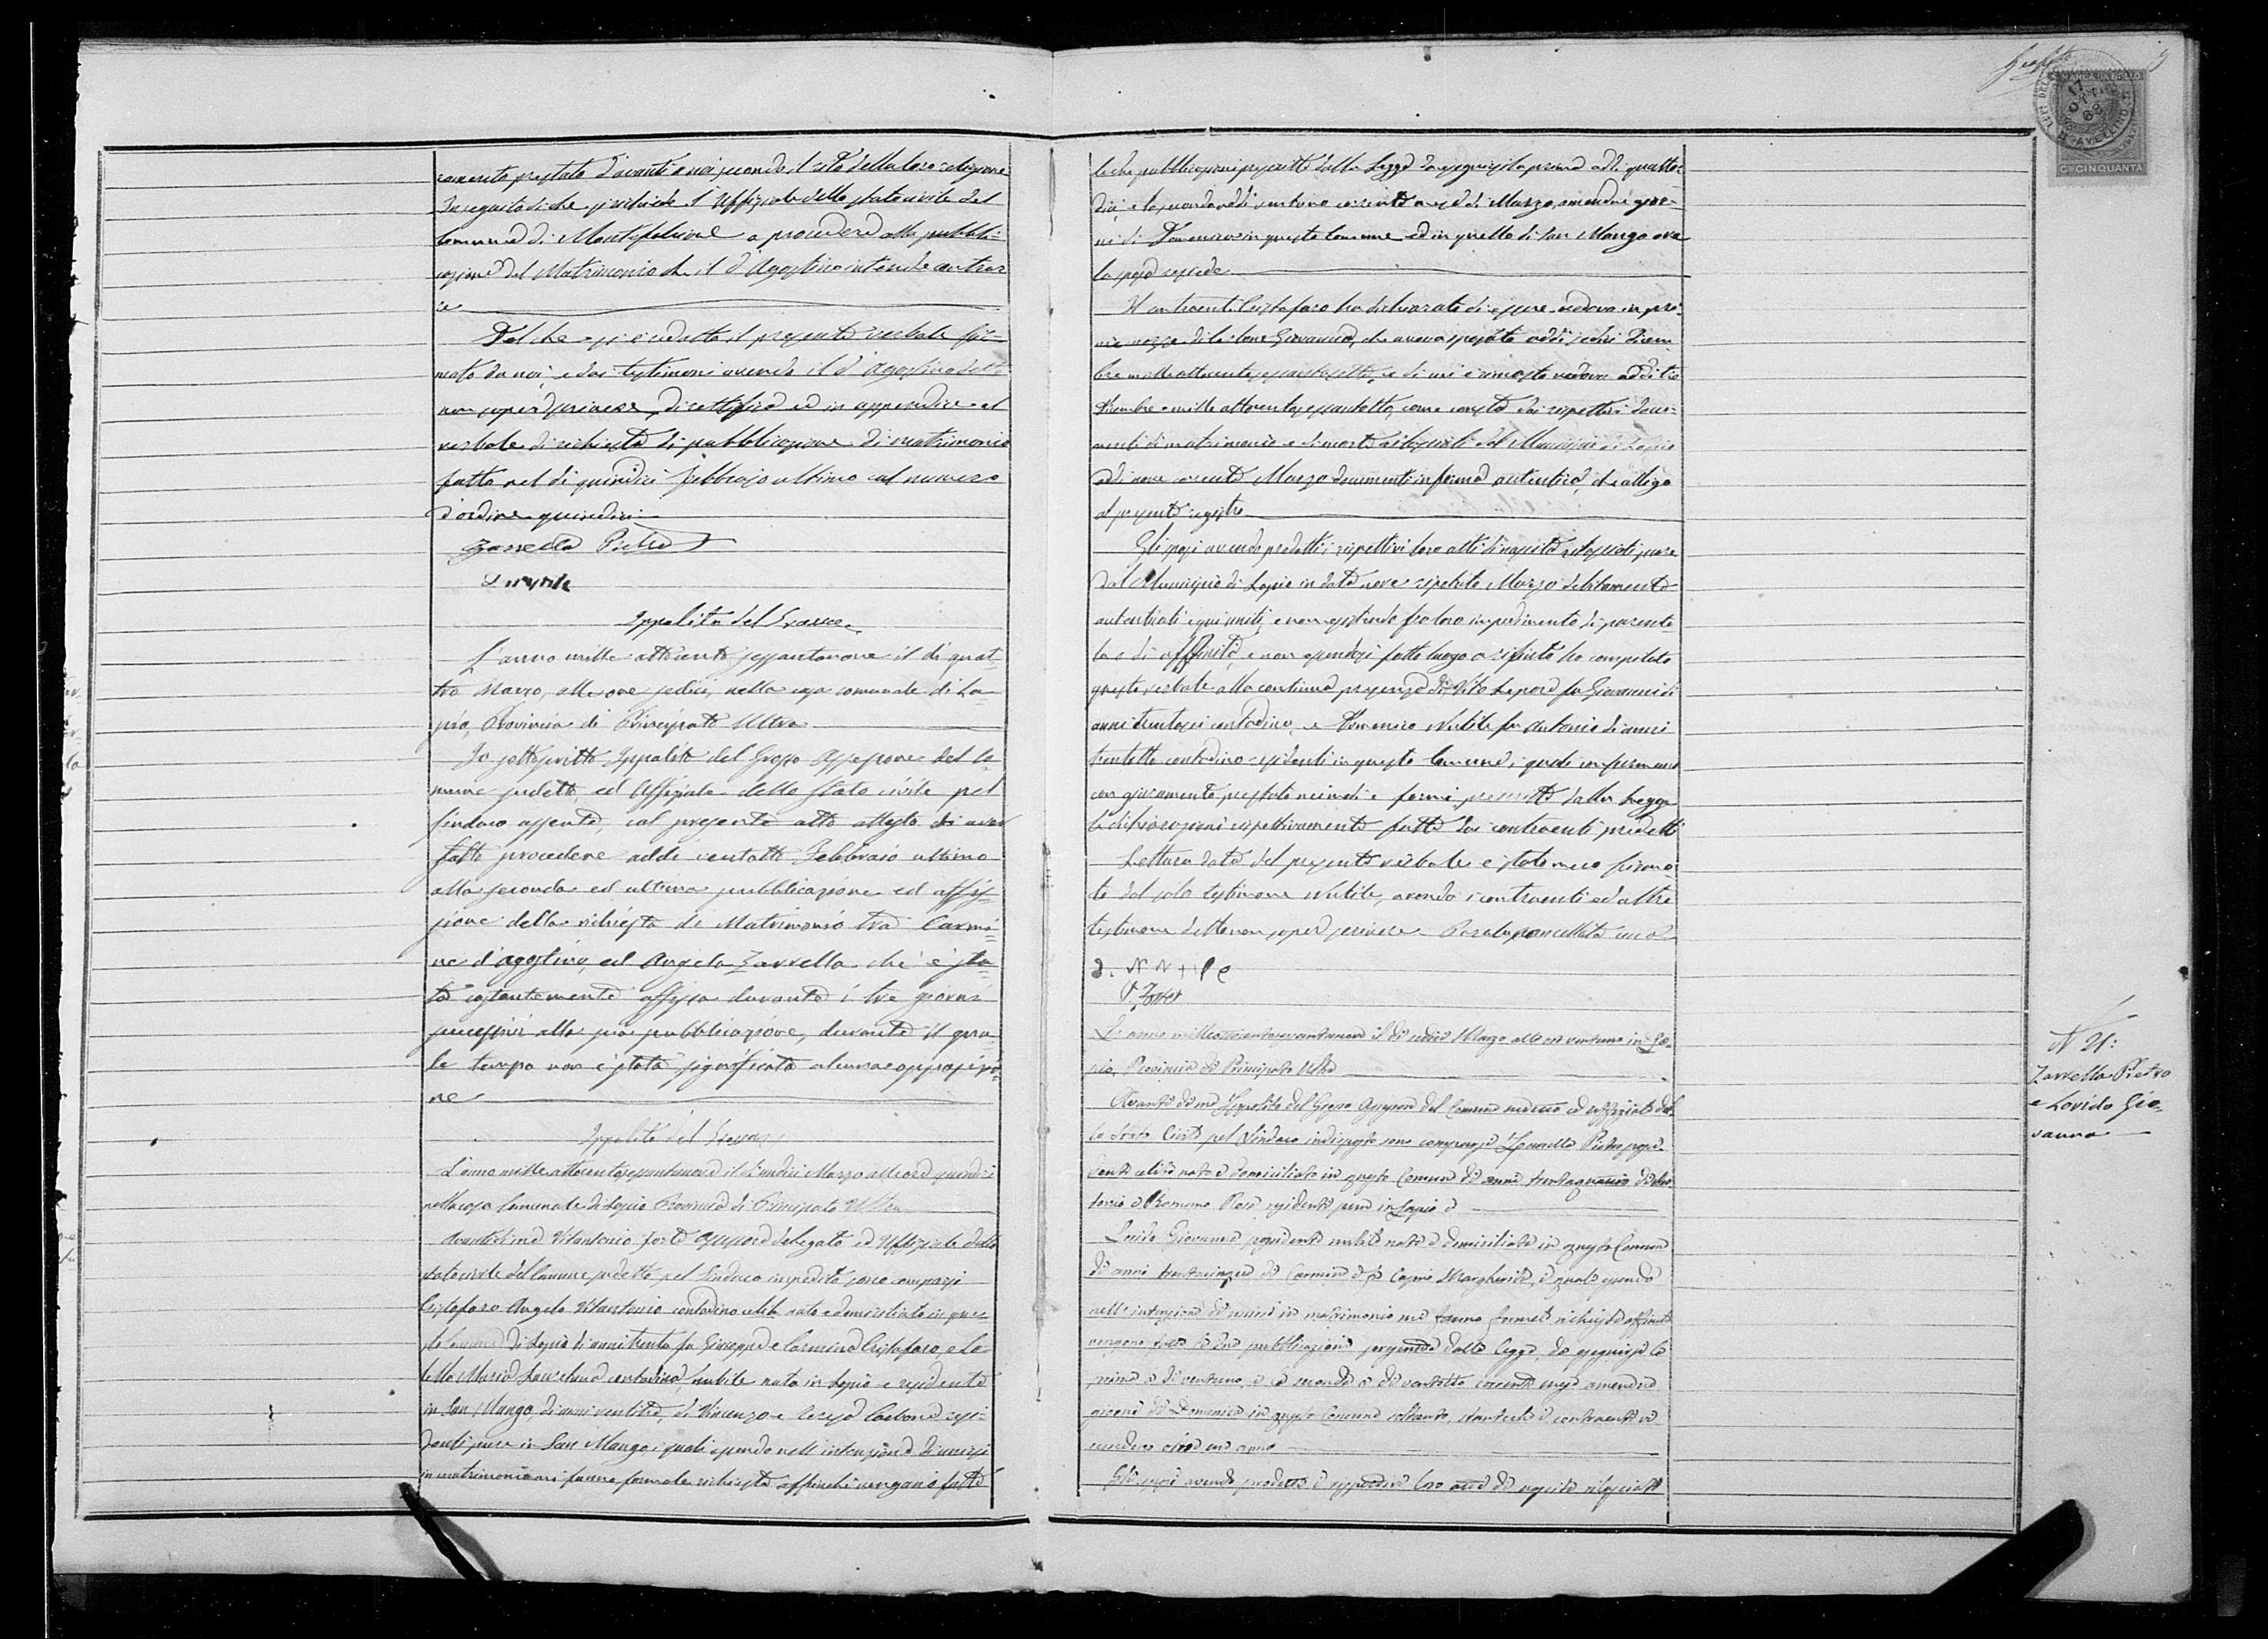 ramento prestato d'avanti a noi secondo il rito della loro religione
In seguito di che richiede l'Uffiziale dello stato civile del
Comune di Montefalcione a procedere alla pubbli-
cazione del Matrimonio che il d'Agostino intende contrar-
re
Del che si è redatto il presente verbale fir-
mato da noi, e dai testimoni avendo il d'Agostino detto
non sapere scrivere, di rettifica ed in appendice al
verbale di richiesta di pubblicazione di matrimonio
fatta nel di quindici Febbrajo ultimo al numero
d'ordine quindici
Zarrella Pietro
Ippolito del Grosso
L'anno mille ottocento sessantanove il di quat-
tro Marzo, alle ore sedici, nella casa comunale di La-
pio, Provincia di Principato Ultra
Io sottoscritto Ippolito del Grosso Assessore del Co-
mune sudetto, ed Uffiziale dello Stato civile pel
Sindaco assente, col presente atto attesto di aver
fatto procedere addi ventotto Febbraio ultimo
alla seconda ed ultima pubblicazione ed affis-
sione della richiesta di Matrimonio tra Carmi-
ne d'Agostino, ed Angela Zarrella che è sta-
ta costantemente affissa durante i tre giorni
successivi alla sua pubblicazione, durante il qua-
le tempo non è stata significata alcuna opposizio-
ne
Ippolito del Grosso
L'anno mille ottocentosessantanove il di undici Marzo alle ore quindici
nella casa Comunale di Lapio Provincia di Principato Ultra
Avanti di me Vitantonio Forte Assessore delegato ed Uffiziale dello
stato civile del Comune sudetto pel Sindaco impedito sono comparsi
Cristofaro Angelo Vitantonio contadino celibe nato e domiciliato in que-
sto Comune di Lapio di anni trenta fu Giuseppe e Carmina Cristofaro, e Co-
lella Maria contadina, nubile nata in Lapio e residente
in San Mango, di anni ventitre, di Vincenzo e Teresa Carbone resi-
denti pure in San Mango, i quali essendo nell'intenzione di unirsi
in matrimonio mi fanno formale richiesta affinchè vengano fatte
le che pubblicazioni prescritte dalla Legge da eseguirsi la prima addi quattor-
dici, e la seconda addi ventuno corrente mese di Marzo, amendue gior-
ni di Domenica in questo Comune ed in quello di San Mango ove
la sposa risiede
Il contraente Cristofaro ha dichiarato di essere vedovo in pri-
me nozze di Giovanna, che aveva sposata addi sedici Dicem-
bre mille ottocento sessantasette, e di cui è rimasto vedovo addi tre
Dicembre mille ottocento sessantotto, come consta dai rispettivi docu-
menti di matrimonio e di morte rilasciati dal Municipio di Lapio
addi nove corrente Marzo documenti in forma autentica, che alligo
al presente registro
Gli sposi avendo prodotti i rispettivi loro atti di nascita rilasciati pure
dal Municipio di Lapio in data nove ripetuto Marzo debitamente
autenticati e qui uniti, e non esistendo fra loro impedimento di parente-
la o di affinità, e non essendosi fatto luogo a rifiuto ho compilato
questo verbale alla continua presenza di Vito Lepore fu Giovanni di
anni trentasei contadino, e Domenico Nutile fu Antonio di anni
trentotto contadino residenti in questo Comune, i quali confermano
con giuramento prestato nei modi e forme prescritte dalla Legge
le dichiarazioni rispettivamente fatte dai contraenti predetti
Lettura data del presente verbale è stato meco firma-
to dal solo testimone Nutile, avendo i contraenti ed altro
testimone detto non sapere scrivere
V. Forte
L'anno milleottocentosessantanove il di undici Marzo alle ore ventuno in La-
pio, Provincia di Principato Ultra
Avanti di me Ippolito del Grosso Assessore del Comune medesimo ed uffiziale del-
lo Stato Civile pel Sindaco indisposto sono comparsi Zarrella Pietro possi-
dente celibe nato e domiciliato in questo Comune di anni trentaquattro di An-
tonio e Romano Rosa residenti pure in Lapio e
Lovido Giovanna possidente nubile nata e domiciliata in questo Comune
di anni trentacinque di Carmine e fu Margherita, i quali essendo
nell'intenzione di unirsi in matrimonio mi fanno formale richiesta affinchè
vengano fatte le due pubblicazioni prescritte dalla Legge, da eseguirsi la
prima a di ventuno, e la seconda a di ventotto corrente mese amendue
giorni di Domenica in questo Comune soltanto, stantechè i contraenti vi
risiedono oltre un anno
Gli sposi avendo prodotto i rispettivi loro atti di nascita rilasciati
MARCA DA BOLLO
17
OTT
68
AVELLINO
C. CINQUANTA
N. 21:
Zarrella Pietro
e Lovido Gio-
vanna